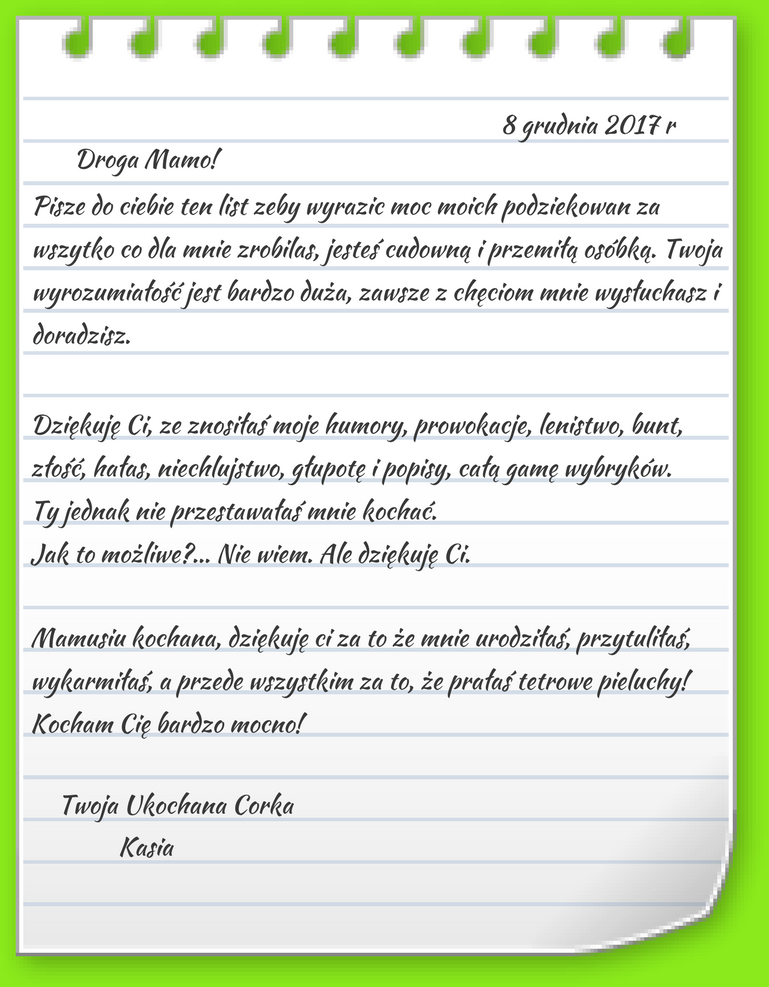 8 grudnia 2017 r
Droga Mamo!
Pisze do ciebie ten list zeby wyrazic moc moich podziekowan za
wszytko co dla mnie zrobilas, jesteś cudowną i przemiłą osóbką. Twoja
wyrozumiałość jest bardzo duża, zawsze z chęciom mnie wysłuchasz i
doradzisz.
Dziękuję Ci, ze znosiłaś moje humory, prowokacje, lenistwo, bunt,
złość, hałas, niechlujstwo, głupotę i popisy, całą gamę wybryków.
Ty jednak nie przestawałaś mnie kochać.
Jak to możliwe?... Nie wiem. Ale dziękuję Ci.
Mamusiu kochana, dziękuję ci za to że mnie urodziłaś, przytuliłaś,
wykarmiłaś, a przede wszystkim za to, że prałaś tetrowe pieluchy!
Kocham Cię bardzo mocno!
Twoja Ukochana Corka
Kasia